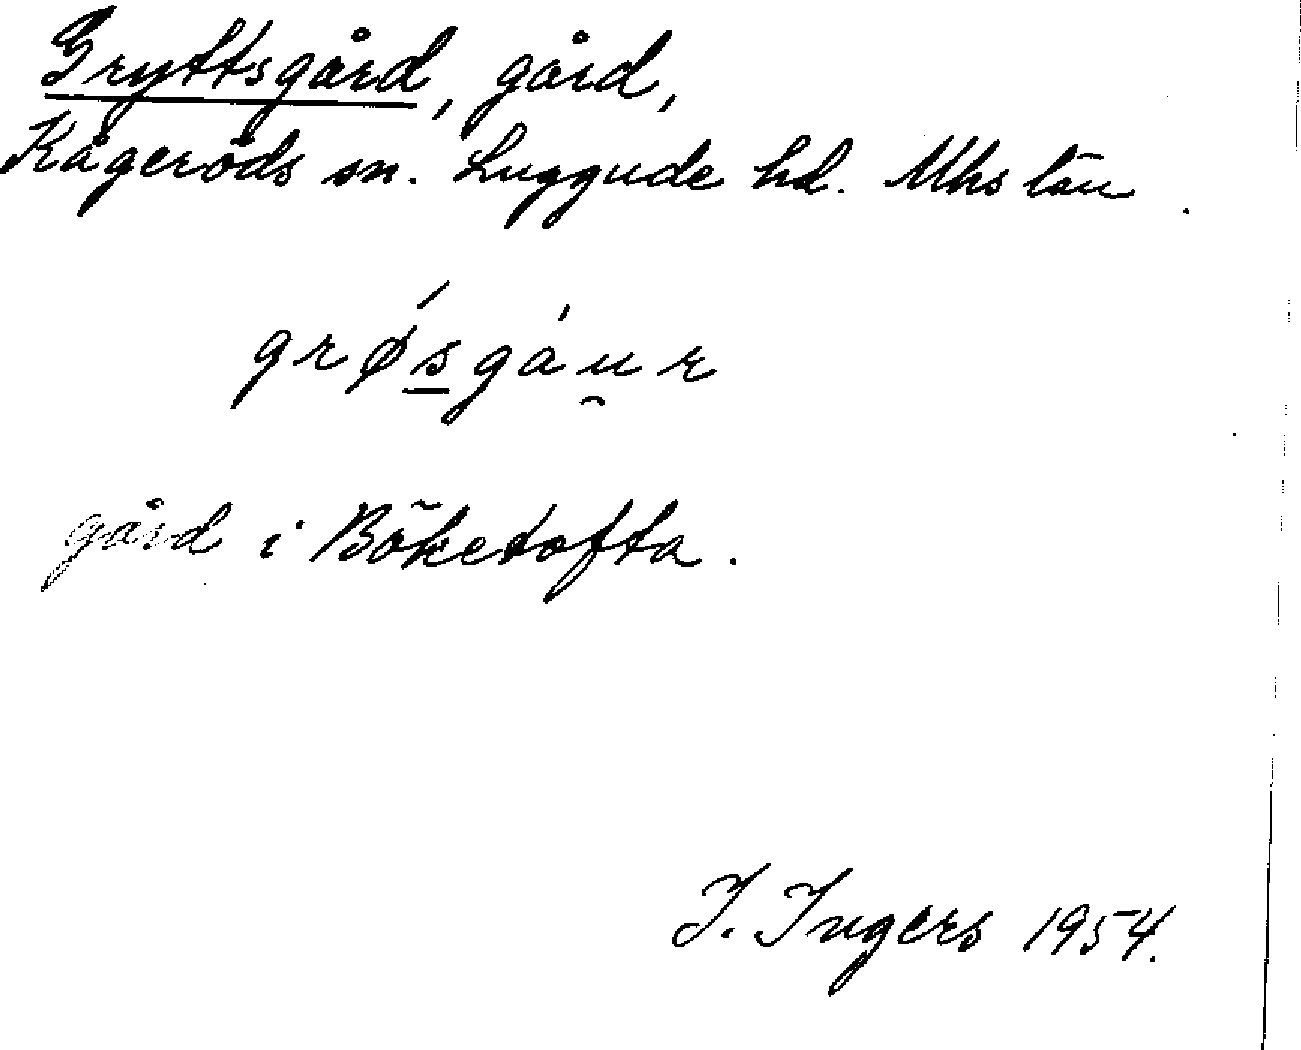 Gryttsgård, gård,
Kågeröds sn. Luggude hd. Mhs län.
grǿs̲gáu̯r
gård i Böketofta.
I. Ingers 1954.